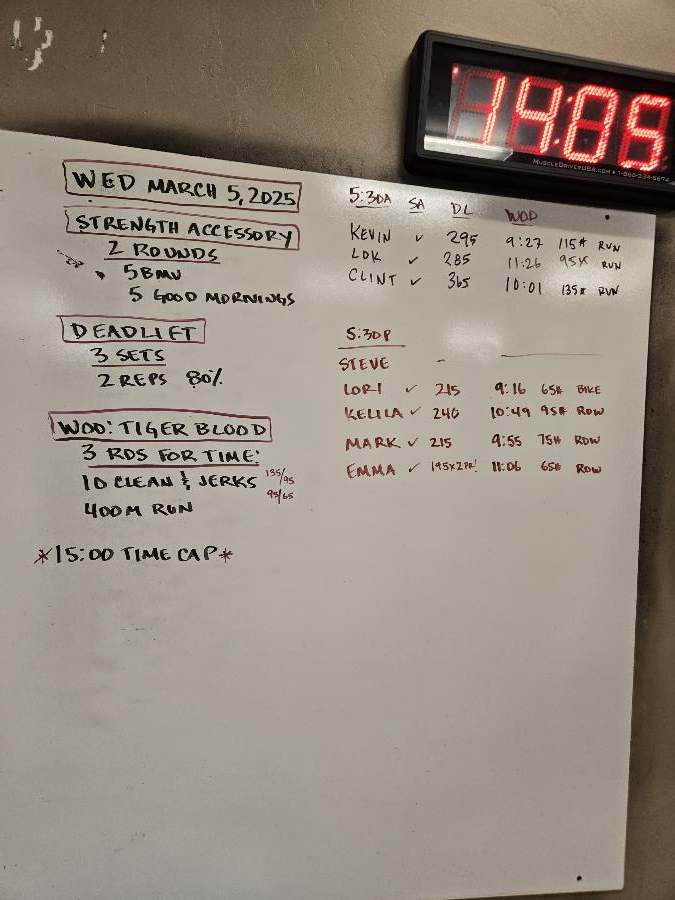 14:05
MUSCLEDRIVERUSA.COM • 1-866-234-5674
WED MARCH 5, 2025
STRENGTH ACCESSORY
2 ROUNDS
5 BMU
5 GOOD MORNINGS
DEADLIFT
3 SETS
2 REPS 80%
WOD: TIGER BLOOD
3 RDS FOR TIME:
10 CLEAN & JERKS 135/95
95/65
400M RUN
*15:00 TIME CAP*
5:30A SA DL WOD
KEVIN ✓ 295 9:27 115# RUN
LDK ✓ 285 11:26 95# RUN
CLINT ✓ 365 10:01 135# RUN
5:30P
STEVE -
LORI ✓ 215 9:16 65# BIKE
KELILA ✓ 240 10:49 95# ROW
MARK ✓ 215 9:55 75# ROW
EMMA ✓ 195x2PR! 11:06 65# ROW